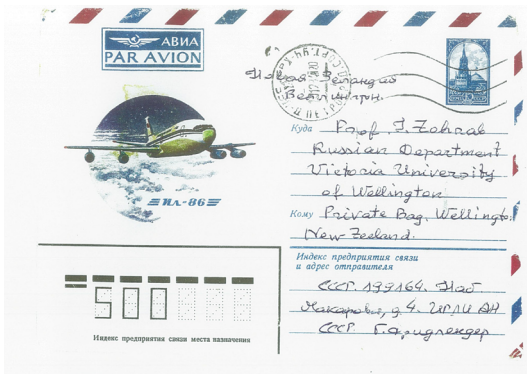 АВИА
PAR AVION
Новая Зеландия
Веллингтон.
Куда Prof. I. Zohrab
Russian Department
Victoria University
of Wellington
Кому Private Bag, Wellington
New Zeeland.
ИЛ-86
Индекс предприятия связи
и адрес отправителя
СССР. 199164. Наб
Макарова, д. 4. ИРЛИ АН
СССР Г. Фридлендер
500
Индекс предприятия связи места назначения